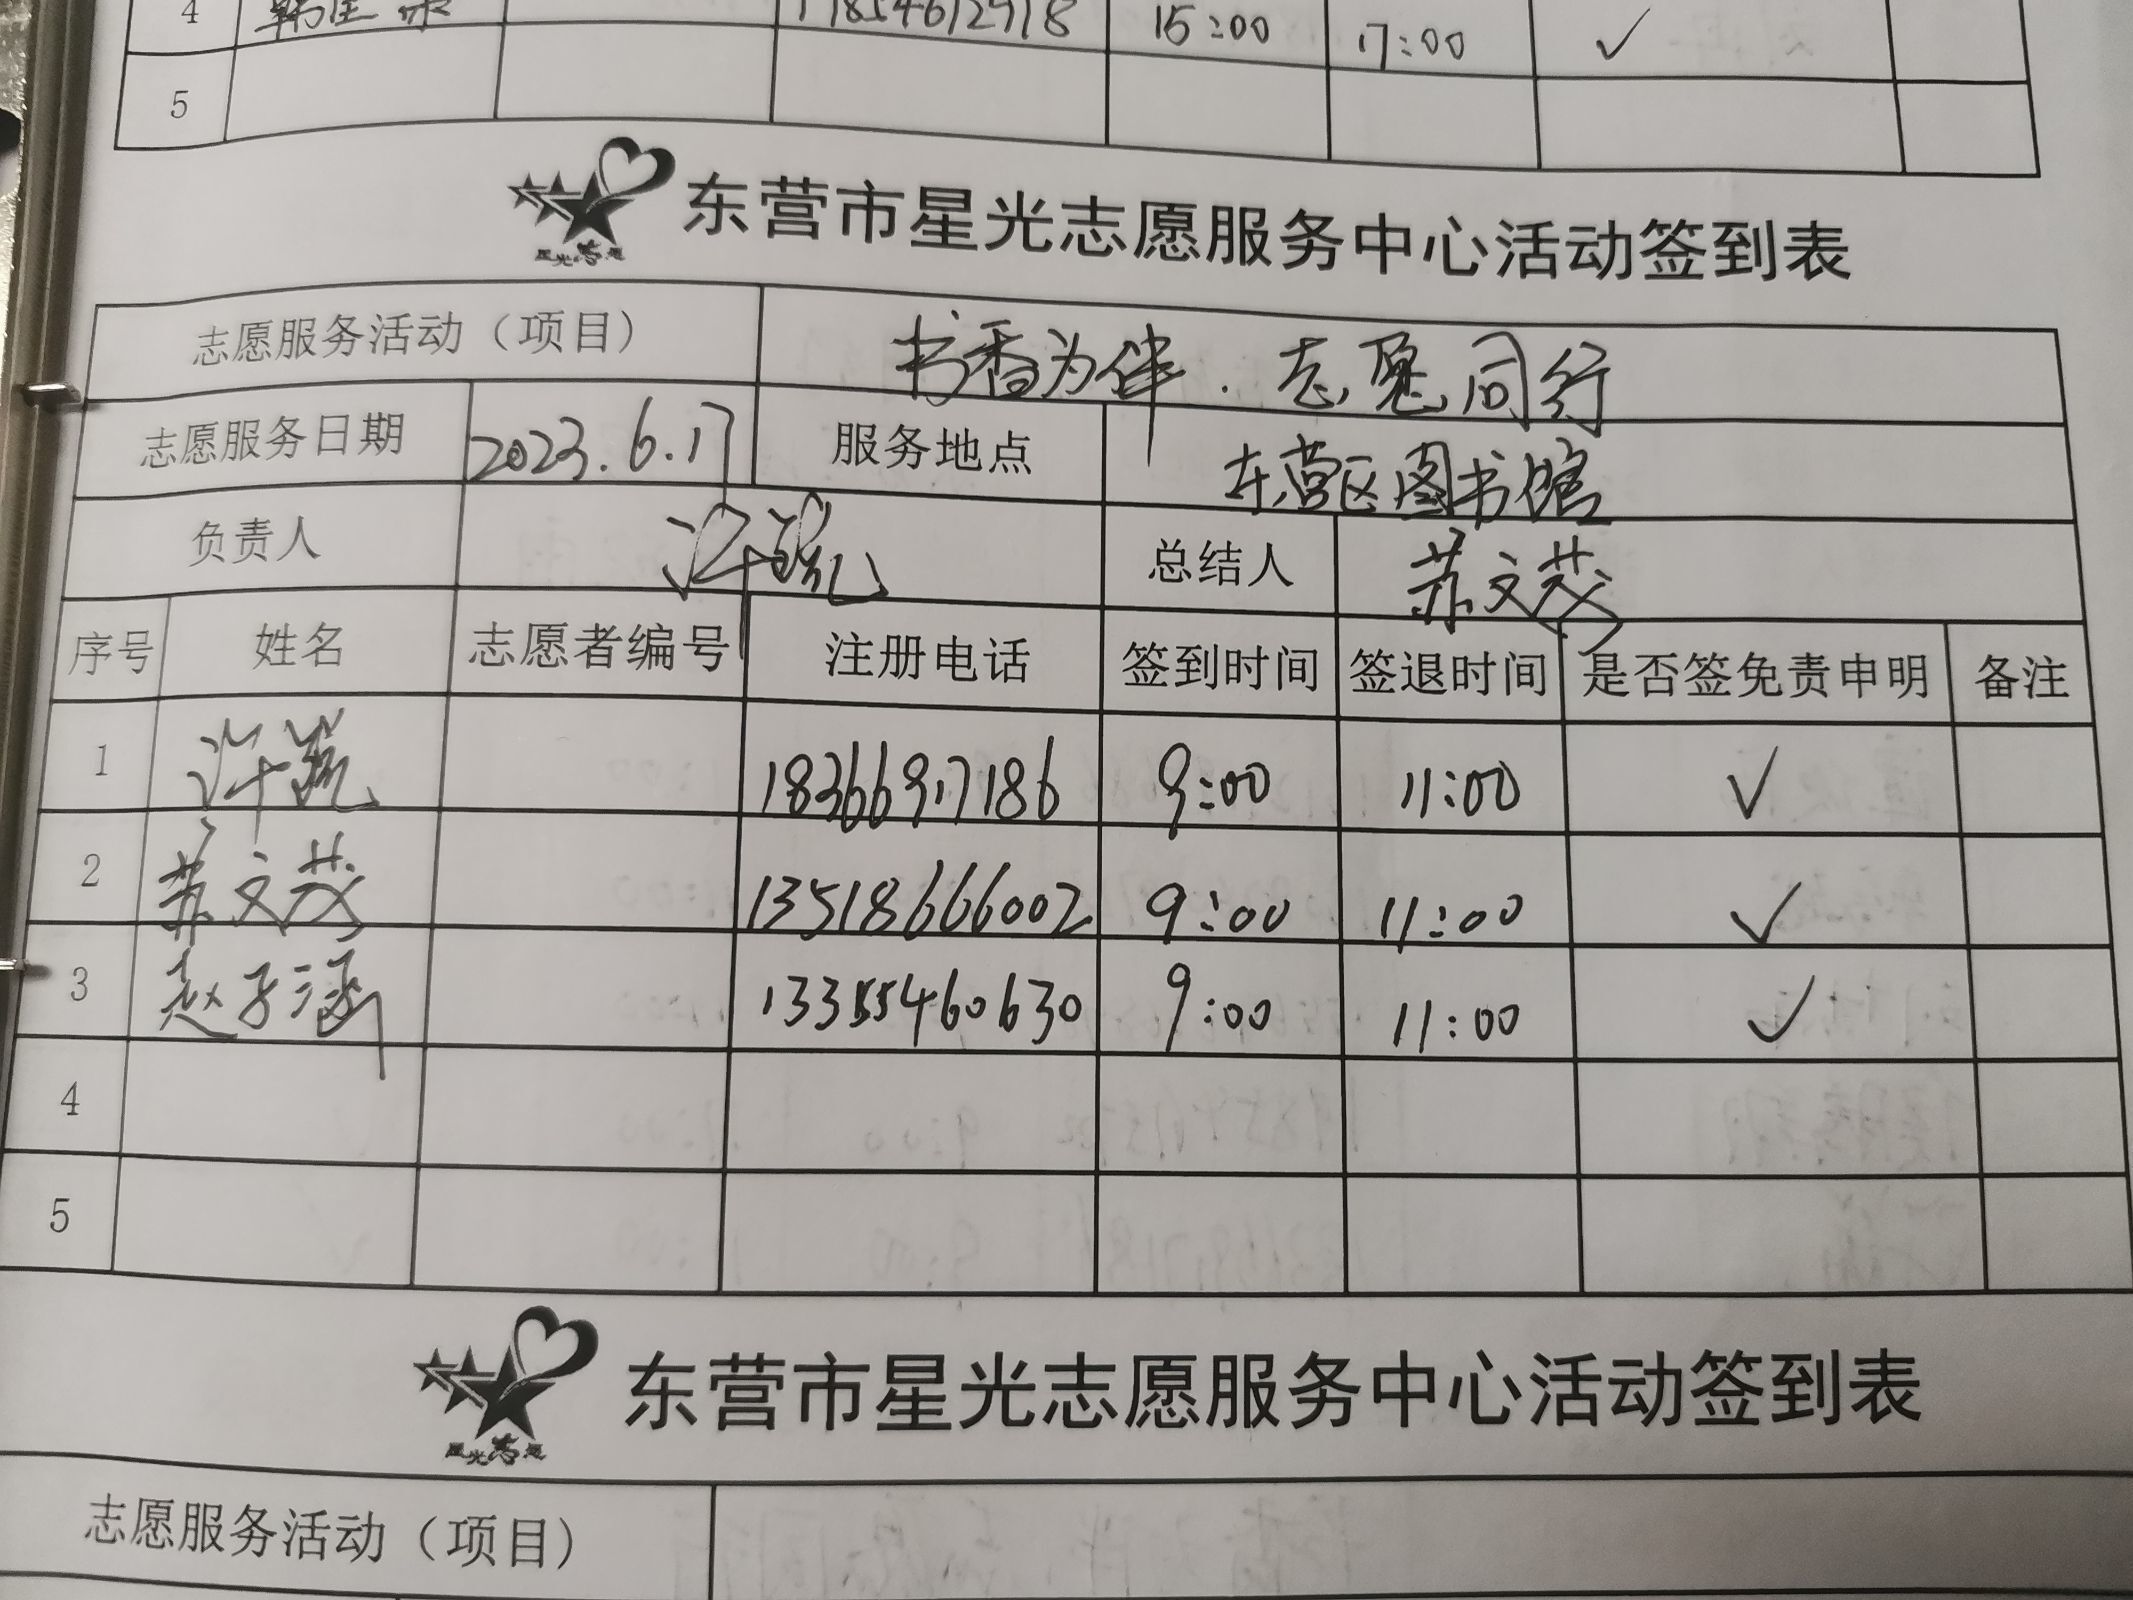 4 17854612918 15:00 17:00 ✓
5
东营市星光志愿服务中心活动签到表
星光志愿
志愿服务活动（项目） 书香为伴.志愿同行
志愿服务日期 2023.6.17 服务地点 东营区图书馆
负责人 许 总结人 苏文茂
序号 姓名 志愿者编号 注册电话 签到时间 签退时间 是否签免责申明 备注
1 许 18366917186 9:00 11:00 ✓
2 苏文茂 13518666002 9:00 11:00 ✓
3 赵子涵 13355460630 9:00 11:00 ✓
4
5
东营市星光志愿服务中心活动签到表
星光志愿
志愿服务活动（项目）